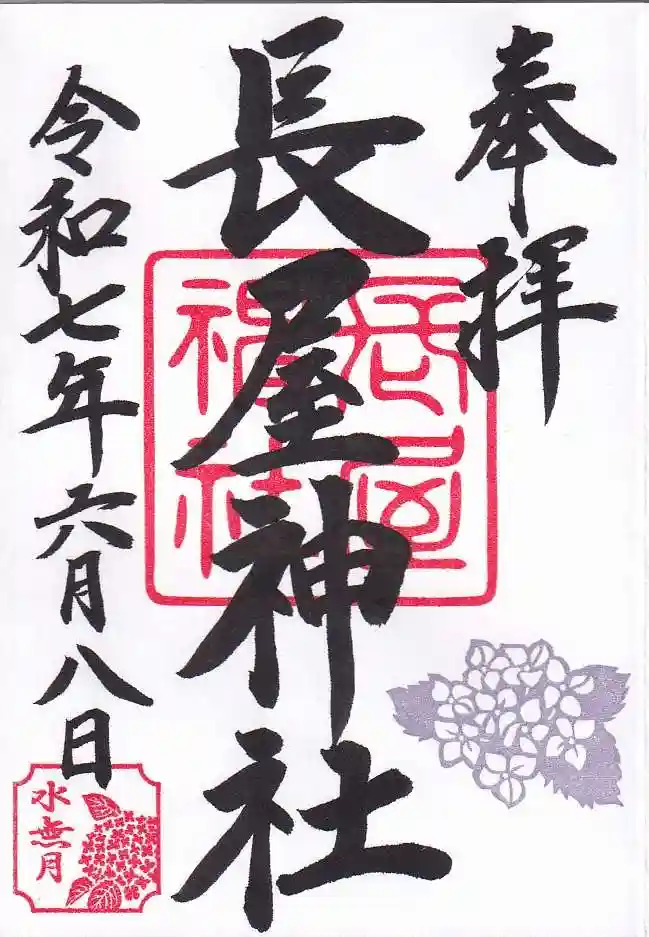 奉拝
長屋神社
長屋神社
令和七年六月八日
水無月